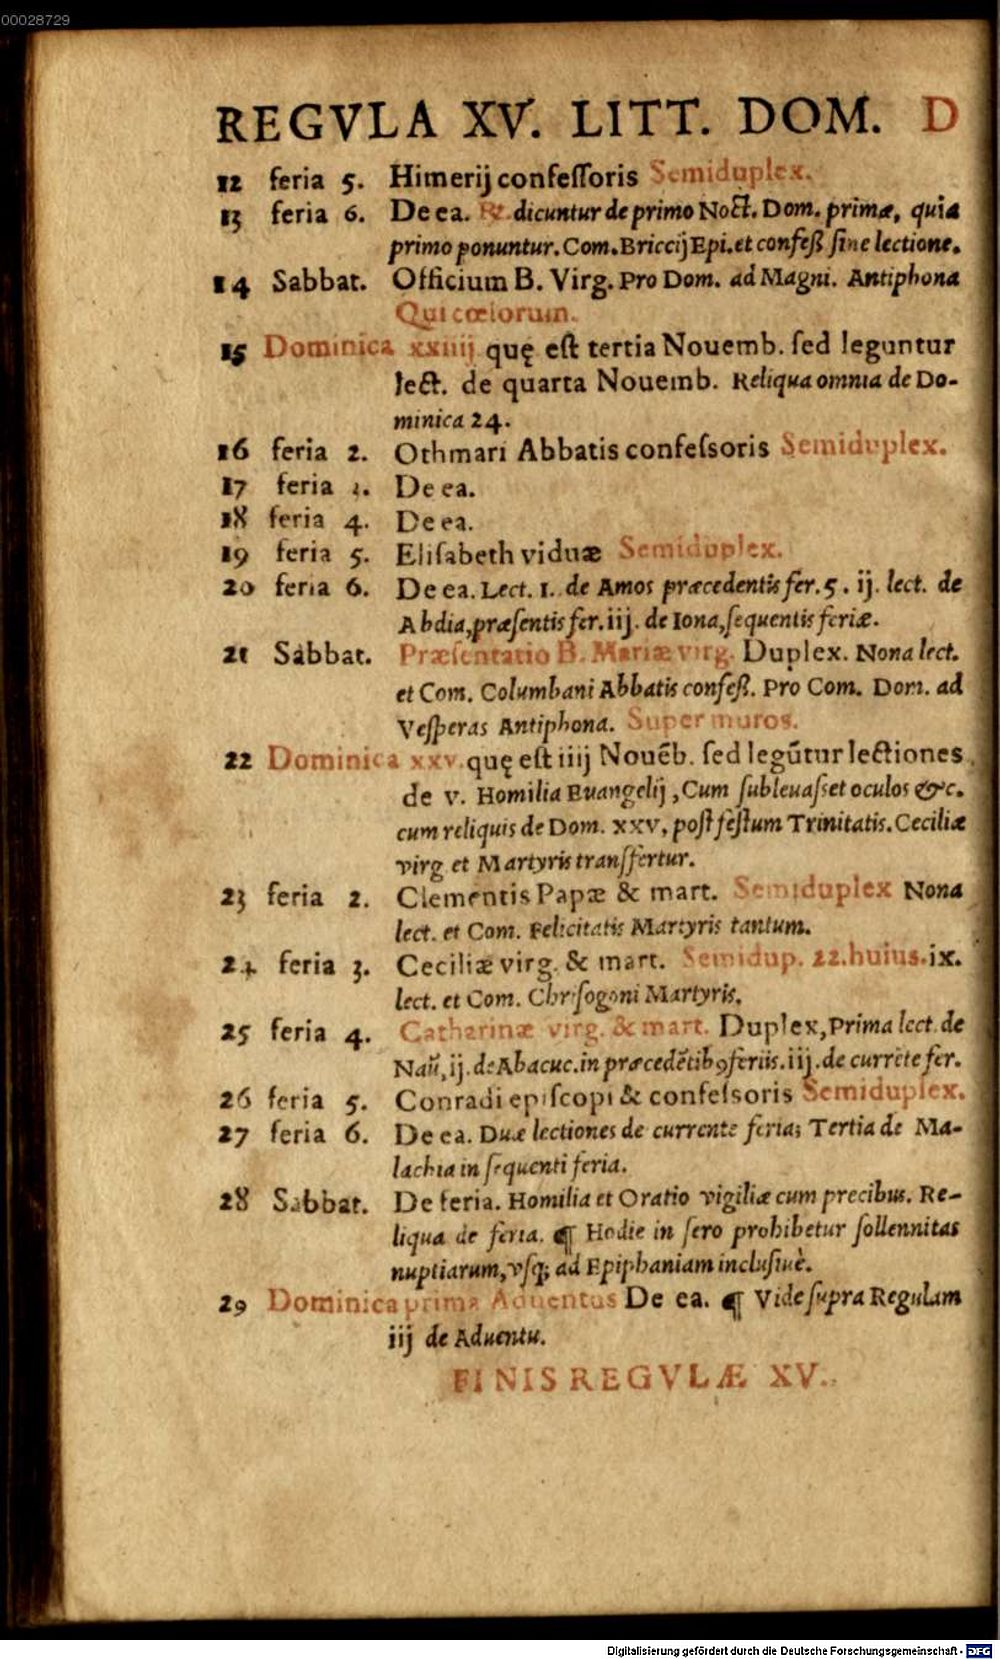 00028729
REGVLA XV. LITT. DOM. D
12 feria 5. Himerij confeſſoris Semiduplex.
13 feria 6. De ea. ℟. dicuntur de primo Noct. Dom. primæ, quia
primo ponuntur. Com. Briccij Epi. et confeß ſine lectione.
14 Sabbat. Officium B. Virg. Pro Dom. ad Magni. Antiphona
Qui cœlorum.
15 Dominica xxiiij quę eſt tertia Nouemb. ſed leguntur
lect. de quarta Nouemb. Reliqua omnia de Do-
minica 24.
16 feria 2. Othmari Abbatis confeſsoris Semiduplex.
17 feria 3. De ea.
18 feria 4. De ea.
19 feria 5. Eliſabeth viduæ Semiduplex.
20 feria 6. De ea. Lect. 1. de Amos præcedentis fer. 5. ij. lect. de
Abdia, præſentis fer. iij. de Iona, ſequentis feriæ.
21 Sabbat. Præſentatio B. Mariæ virg. Duplex. Nona lect.
et Com. Columbani Abbatis confeß. Pro Com. Dom. ad
Veſperas Antiphona. Super muros.
22 Dominica xxv. quę eſt iiij Nouēb. ſed legūtur lectiones
de v. Homilia Euangelij, Cum ſubleuaſset oculos &c.
cum reliquis de Dom. xxv, poſt feſtum Trinitatis. Ceciliæ
virg et Martyris transfertur.
23 feria 2. Clementis Papæ & mart. Semiduplex Nona
lect. et Com. Felicitatis Martyris tantum.
24 feria 3. Ceciliæ virg. & mart. Semidup. 22. huius. ix.
lect. et Com. Chryſogoni Martyris.
25 feria 4. Catharinæ virg. & mart. Duplex, Prima lect. de
Naū, ij. de Abacuc. in præcedētibꝯ feriis. iij. de currēte fer.
26 feria 5. Conradi epiſcopi & confeſsoris Semiduplex.
27 feria 6. De ea. Duæ lectiones de currente feria; Tertia de Ma-
lachia in ſequenti feria.
28 Sabbat. De feria. Homilia et Oratio vigiliæ cum precibus. Re-
liqua de feria. ¶ Hodie in ſero prohibetur ſollennitas
nuptiarum, vſq; ad Epiphaniam incluſiuè.
29 Dominica prima Aduentus De ea. ¶ Vide ſupra Regulam
iij de Aduentu.
FINIS REGVLÆ XV.
Digitalisierung gefördert durch die Deutsche Forschungsgemeinschaft - DFG